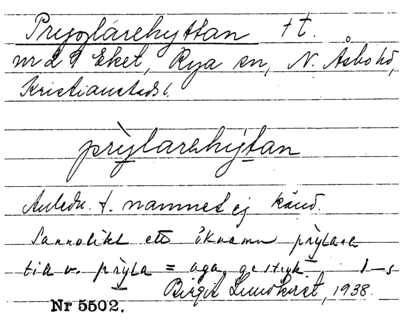 Prygglarehyttan tt.
nr 2 9 Eket, Rya sn, N. Åsbo hd,
Kristianstads l.
prỳlarehýtan
Anledn. t. namnet ej känd.
Sannolikt ett öknamn prylare
till v. pryla = aga, ge stryk
Birgit Lundkvist, 1938.
Nr 5502.